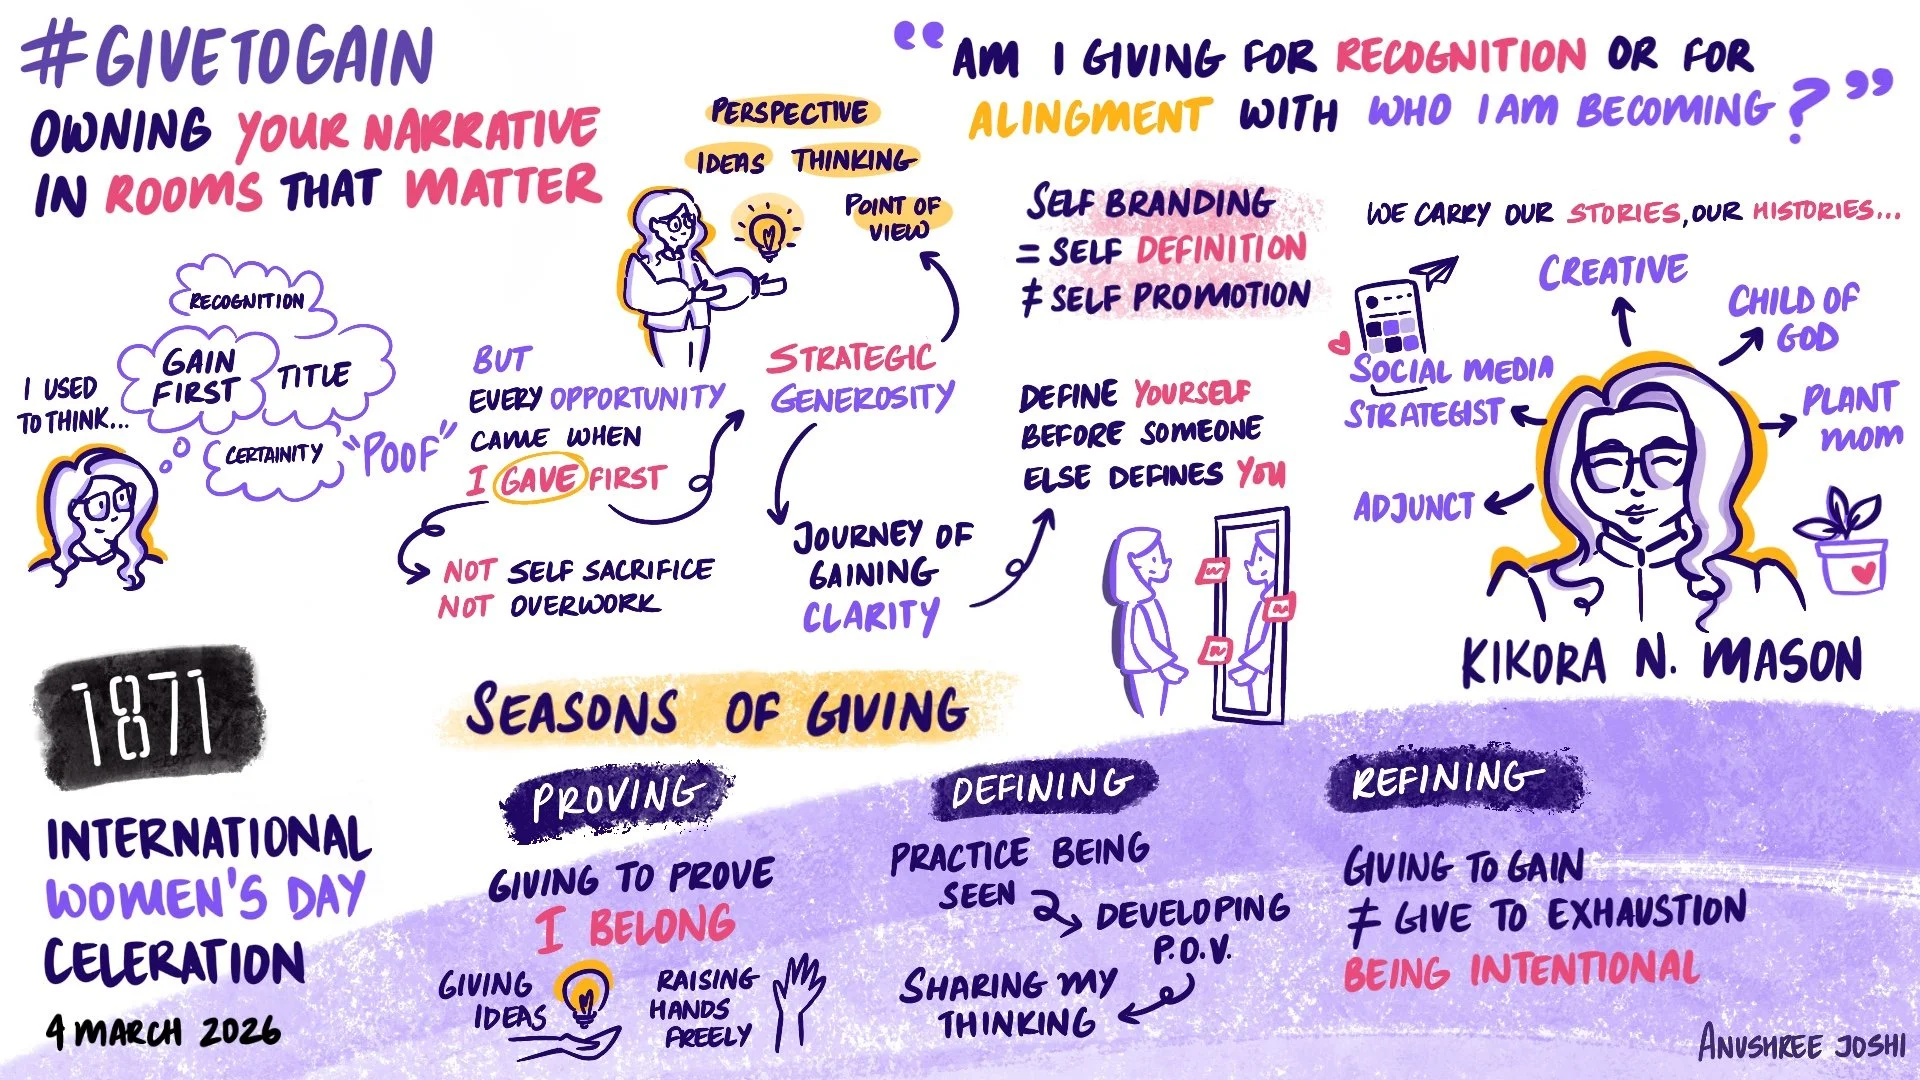 #GIVETOGAIN
OWNING YOUR NARRATIVE
IN ROOMS THAT MATTER
“AM I GIVING FOR RECOGNITION OR FOR
ALINGMENT WITH WHO I AM BECOMING?”
I USED
TO THINK...
RECOGNITION
GAIN
FIRST
TITLE
CERTAINITY
“POOF”
BUT
EVERY OPPORTUNITY
CAME WHEN
I GAVE FIRST
NOT SELF SACRIFICE
NOT OVERWORK
PERSPECTIVE
IDEAS THINKING
POINT OF
VIEW
STRATEGIC
GENEROSITY
JOURNEY OF
GAINING
CLARITY
SELF BRANDING
= SELF DEFINITION
≠ SELF PROMOTION
DEFINE YOURSELF
BEFORE SOMEONE
ELSE DEFINES YOU
WE CARRY OUR STORIES, OUR HISTORIES...
CREATIVE
CHILD OF
GOD
SOCIAL MEDIA
STRATEGIST
PLANT
MOM
ADJUNCT
KIKORA N. MASON
1871
INTERNATIONAL
WOMEN'S DAY
CELERATION
4 MARCH 2026
SEASONS OF GIVING
PROVING
GIVING TO PROVE
I BELONG
GIVING
IDEAS
RAISING
HANDS
FREELY
DEFINING
PRACTICE BEING
SEEN
DEVELOPING
P.O.V.
SHARING MY
THINKING
REFINING
GIVING TO GAIN
≠ GIVE TO EXHAUSTION
BEING INTENTIONAL
ANUSHREE JOSHI